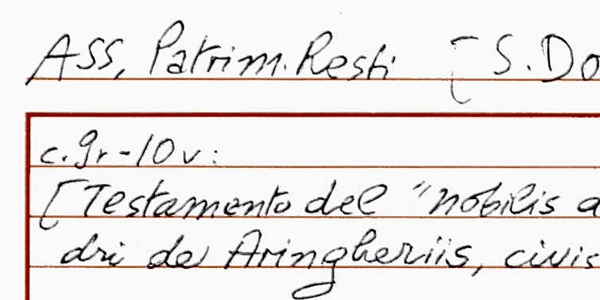 ASS, Patrim. Resti [S. Do
c. 9r-10v:
[Testamento del "nobilis a
dri de Aringheriis, civis